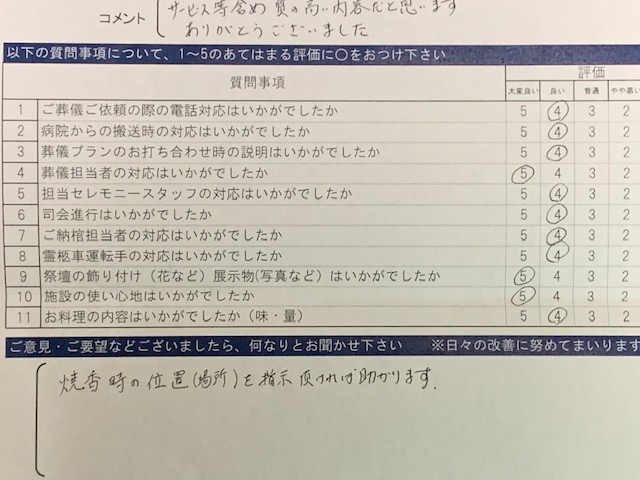 サービス等含め質の高い内容だと思います
コメント
ありがとうございました
以下の質問事項について、1～5のあてはまる評価に〇をおつけ下さい
質問事項 評価
大変良い 良い 普通 やや悪い
1 ご葬儀ご依頼の際の電話対応はいかがでしたか 5 4 3 2
2 病院からの搬送時の対応はいかがでしたか 5 4 3 2
3 葬儀プランのお打ち合わせ時の説明はいかがでしたか 5 4 3 2
4 葬儀担当者の対応はいかがでしたか 5 4 3 2
5 担当セレモニースタッフの対応はいかがでしたか 5 4 3 2
6 司会進行はいかがでしたか 5 4 3 2
7 ご納棺担当者の対応はいかがでしたか 5 4 3 2
8 霊柩車運転手の対応はいかがでしたか 5 4 3 2
9 祭壇の飾り付け（花など）展示物(写真など）はいかがでしたか 5 4 3 2
10 施設の使い心地はいかがでしたか 5 4 3 2
11 お料理の内容はいかがでしたか（味・量） 5 4 3 2
ご意見・ご要望などございましたら、何なりとお聞かせ下さい ※日々の改善に努めてまいります
焼香時の位置(場所)を指示頂ければ助かります。